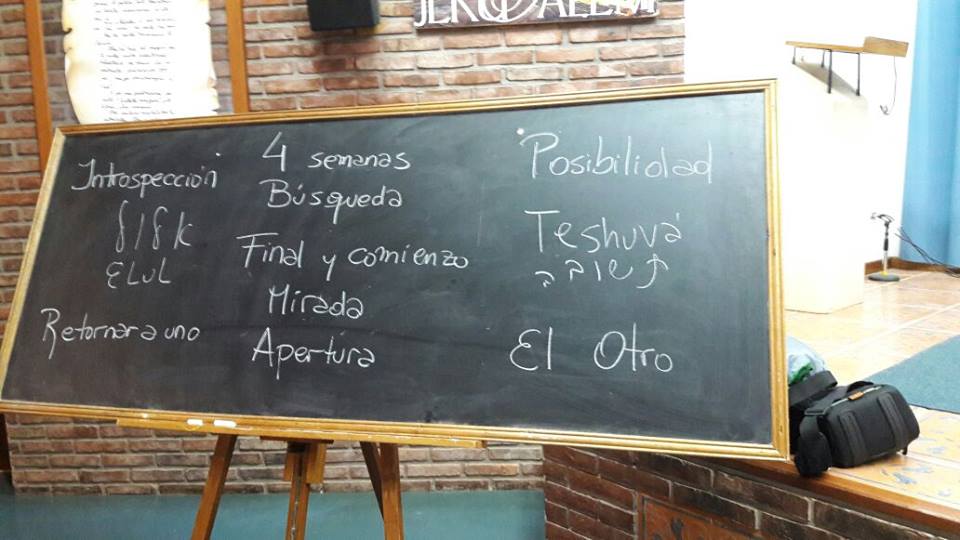 JERUSALEM
Introspección
אלול
ELUL
Retornar a uno
4 semanas
Búsqueda
Final y comienzo
Mirada
Apertura
Posibilidad
Teshuvá
תשובה
El Otro